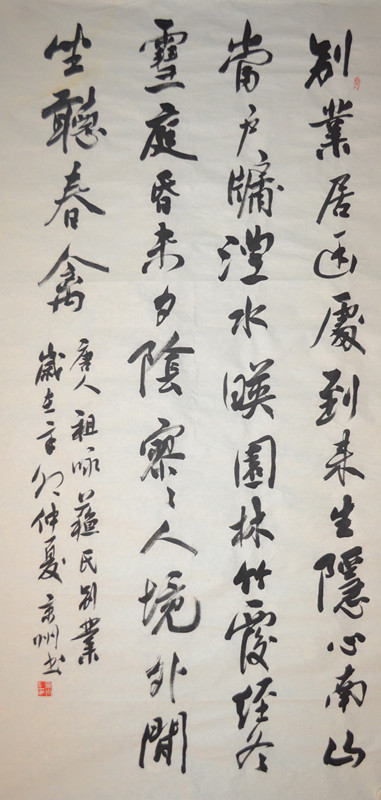 别業居幽處到来生隱心南山
當户牖澧水暎園林竹覆经冬
雪庭昏未夕陰寥々人境外閒
坐聽春禽
唐人祖咏蘇氏别業
歲在辛卯仲夏京州书